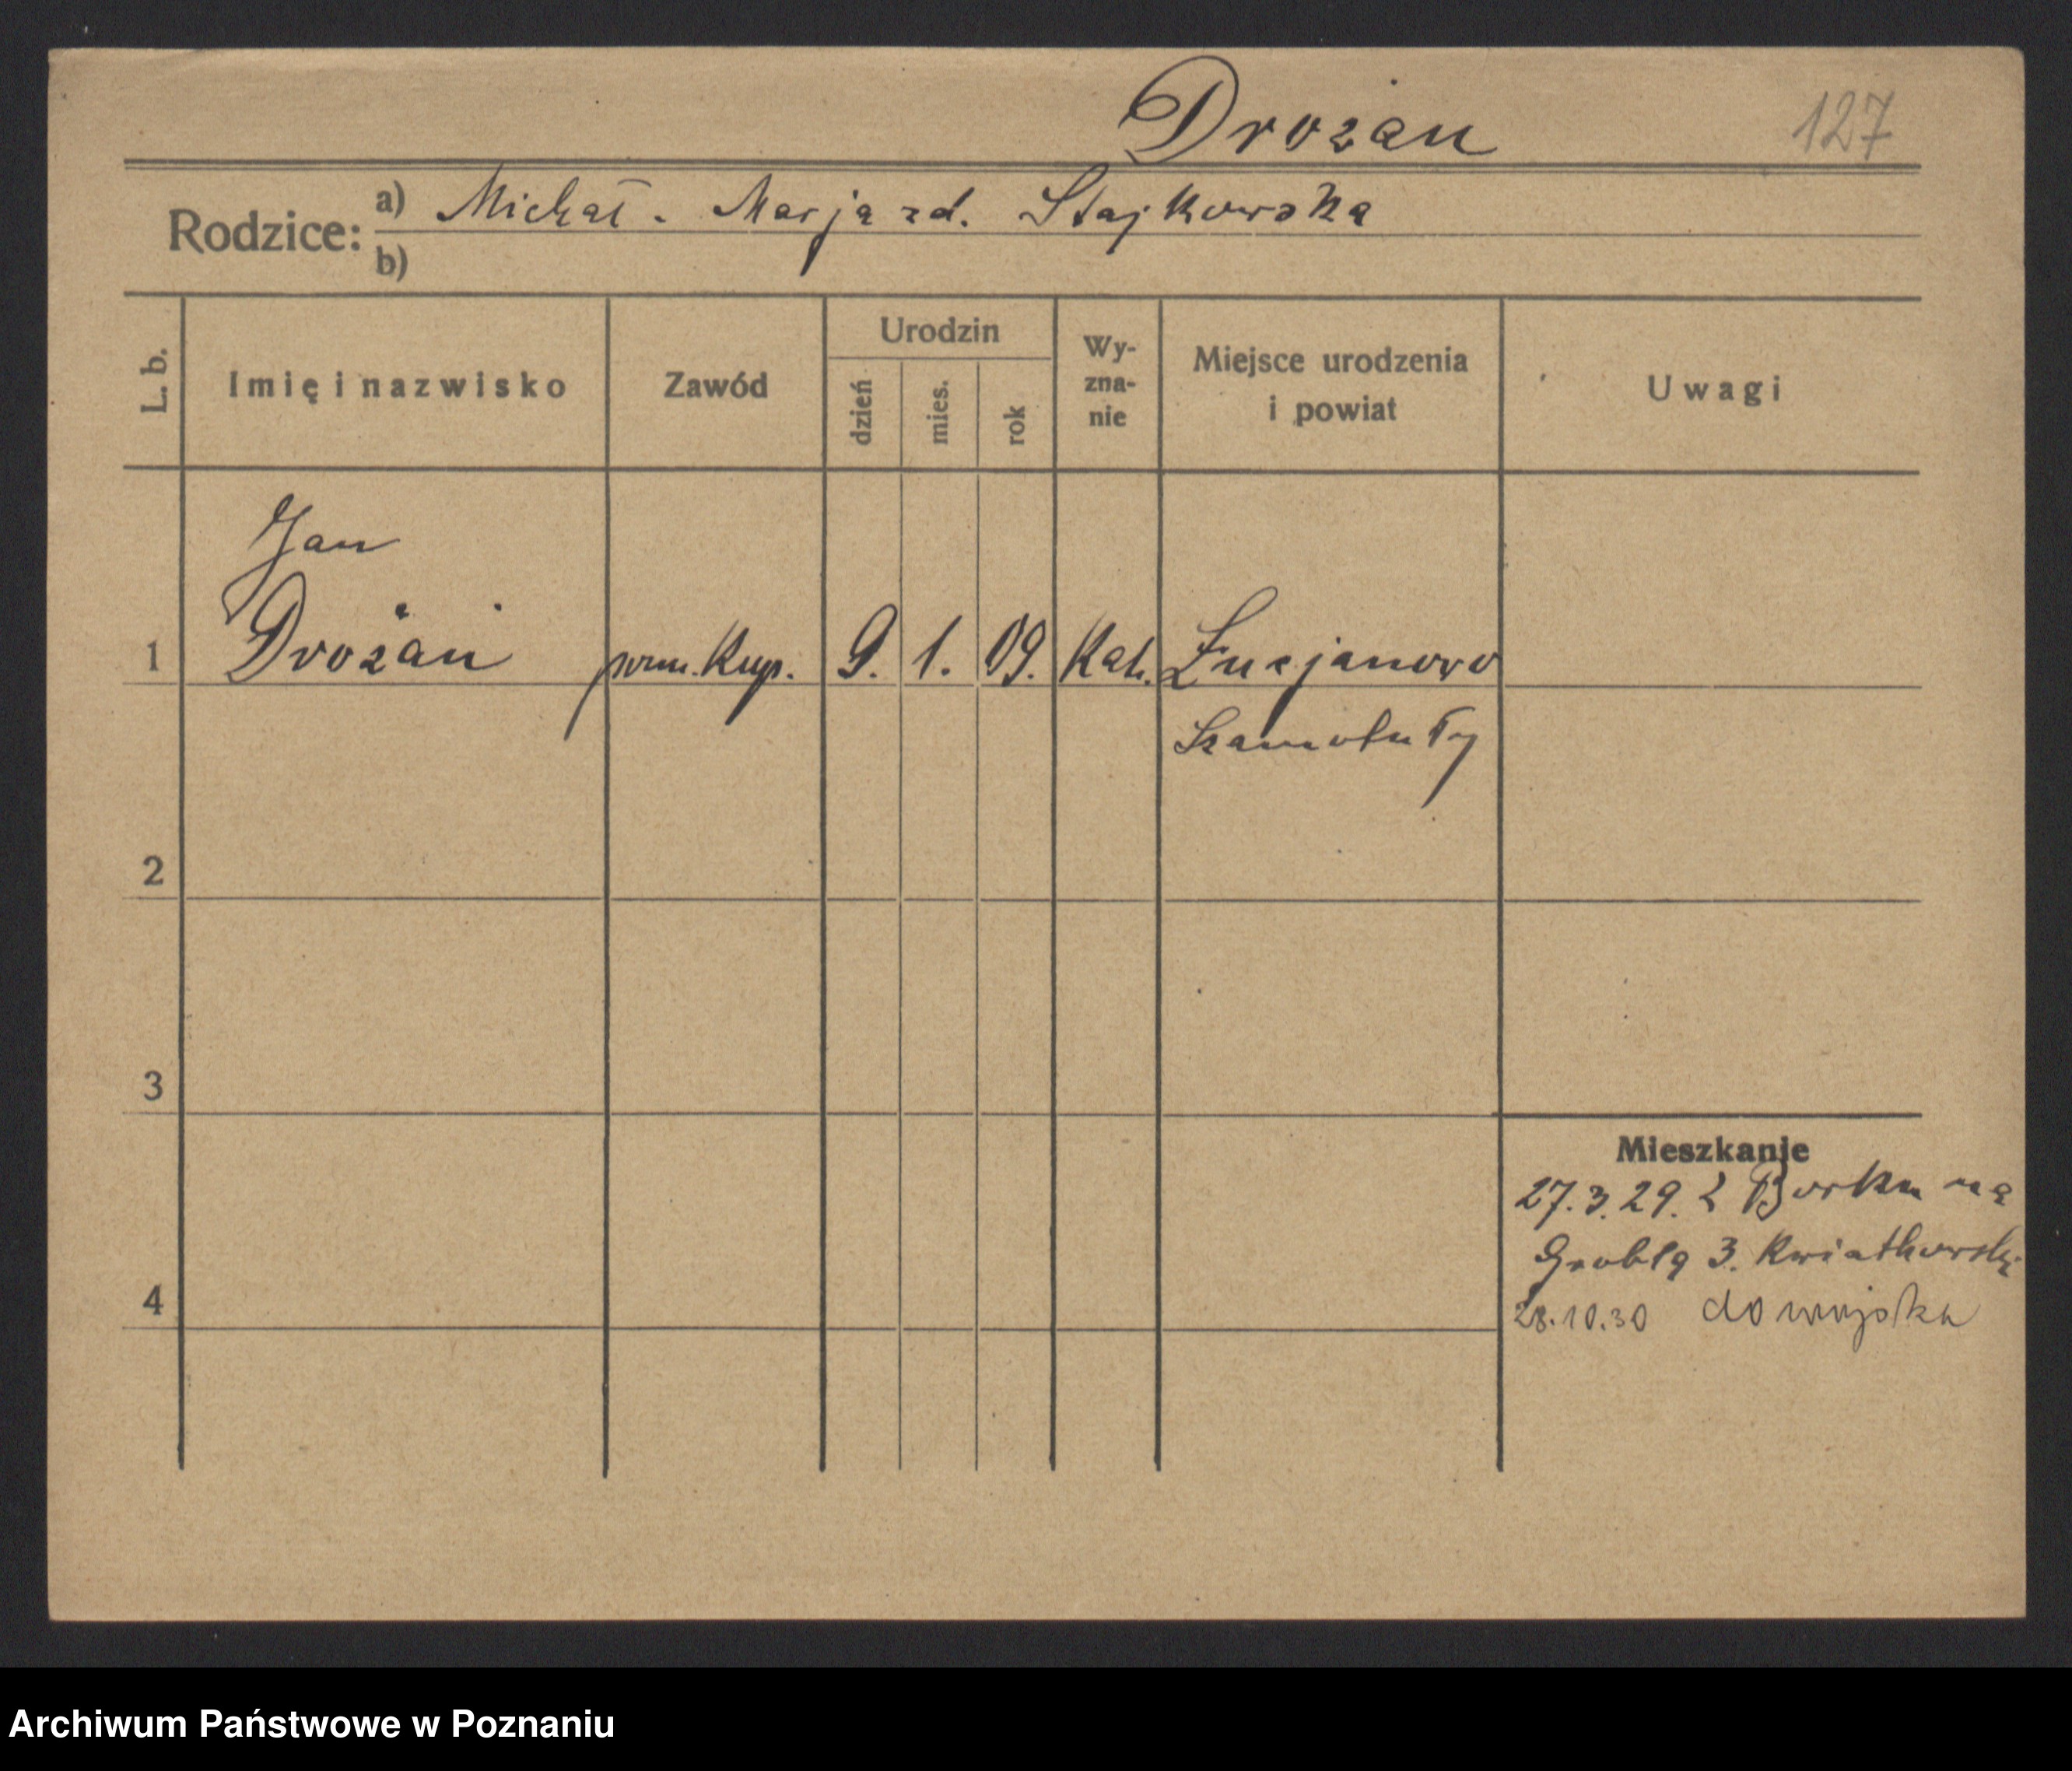 Drożan 127
Rodzice: a) Michał - Marja zd. Stajkowska
b)
L. b. Imię i nazwisko Zawód Urodzin Wy-zna-nie Miejsce urodzenia i powiat Uwagi
dzień mies. rok
Jan
1 Drożan pom. Kup. 9. 1. 09. Kat. Lucjanowo
Szamotuły
2
3
Mieszkanie
27.3.29. z Borku na
Groblą 3. Kwiatkowski
4 28.10.30 do wojska
Archiwum Państwowe w Poznaniu